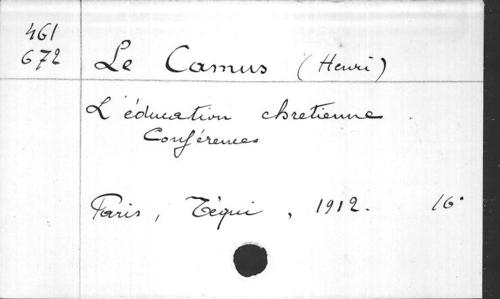 461
672
Le Camus (Henri)
L'éducation chretienne.
Conférences
Paris, Téqui, 1912. 16°